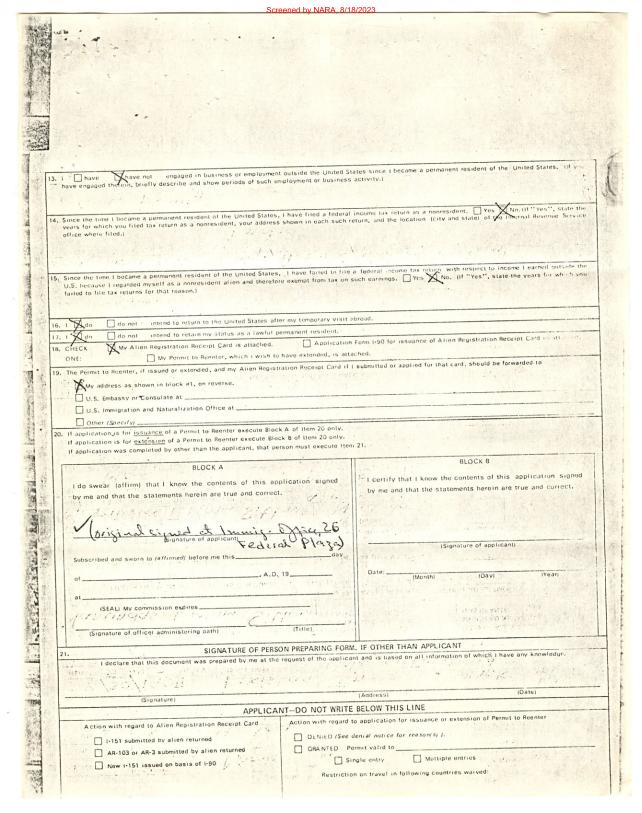 Screened by NARA, 8/18/2023
13. I ☐ have ☒ have not engaged in business or employment outside the United States since I became a permanent resident of the United States. (If you
have engaged therein, briefly describe and show periods of such employment or business activity.)
14. Since the time I became a permanent resident of the United States, I have filed a federal income tax return as a nonresident. ☐ Yes ☒ No. (If "Yes", state the
years for which you filed tax return as a nonresident, your address shown in each such return, and the location (city and state) of the Internal Revenue Service
office where filed.)
15. Since the time I became a permanent resident of the United States, I have failed to file a federal income tax return with respect to income I earned outside the
U.S. because I regarded myself as a nonresident alien and therefore exempt from tax on such earnings. ☐ Yes ☒ No. (If "Yes", state the years for which you
failed to file tax returns for that reason.)
16. I ☒ do ☐ do not intend to return to the United States after my temporary visit abroad.
17. I ☒ do ☐ do not intend to retain my status as a lawful permanent resident.
18. CHECK ☒ My Alien Registration Receipt Card is attached. ☐ Application Form I-90 for issuance of Alien Registration Receipt Card
ONE: ☐ My Permit to Reenter, which I wish to have extended, is attached.
19. The Permit to Reenter, if issued or extended, and my Alien Registration Receipt Card if I submitted or applied for that card, should be forwarded to
☒ My address as shown in block #1, on reverse.
☐ U.S. Embassy or Consulate at
☐ U.S. Immigration and Naturalization Office at
☐ Other (Specify)
20. If application is for issuance of a Permit to Reenter execute Block A of Item 20 only.
If application is for extension of a Permit to Reenter execute Block B of Item 20 only.
If application was completed by other than the applicant, that person must execute Item 21.
BLOCK A
I do swear (affirm) that I know the contents of this application signed
by me and that the statements herein are true and correct.
✓ (original signed at Immig. Office, 26
Federal Plaza)
(Signature of applicant)
Subscribed and sworn to (affirmed) before me this day
of , A.D. 19
at
(SEAL) My commission expires
(Signature of officer administering oath) (Title)
BLOCK B
I certify that I know the contents of this application signed
by me and that the statements herein are true and correct.
(Signature of applicant)
Date:
(Month) (Day) (Year)
21. SIGNATURE OF PERSON PREPARING FORM, IF OTHER THAN APPLICANT
I declare that this document was prepared by me at the request of the applicant and is based on all information of which I have any knowledge.
(Signature) (Address) (Date)
APPLICANT—DO NOT WRITE BELOW THIS LINE
Action with regard to Alien Registration Receipt Card
☐ I-151 submitted by alien returned
☐ AR-103 or AR-3 submitted by alien returned
☐ New I-151 issued on basis of I-90
Action with regard to application for issuance or extension of Permit to Reenter
☐ DENIED (See denial notice for reason(s).)
☐ GRANTED Permit valid to
☐ Single entry ☐ Multiple entries
Restriction on travel in following countries waived: